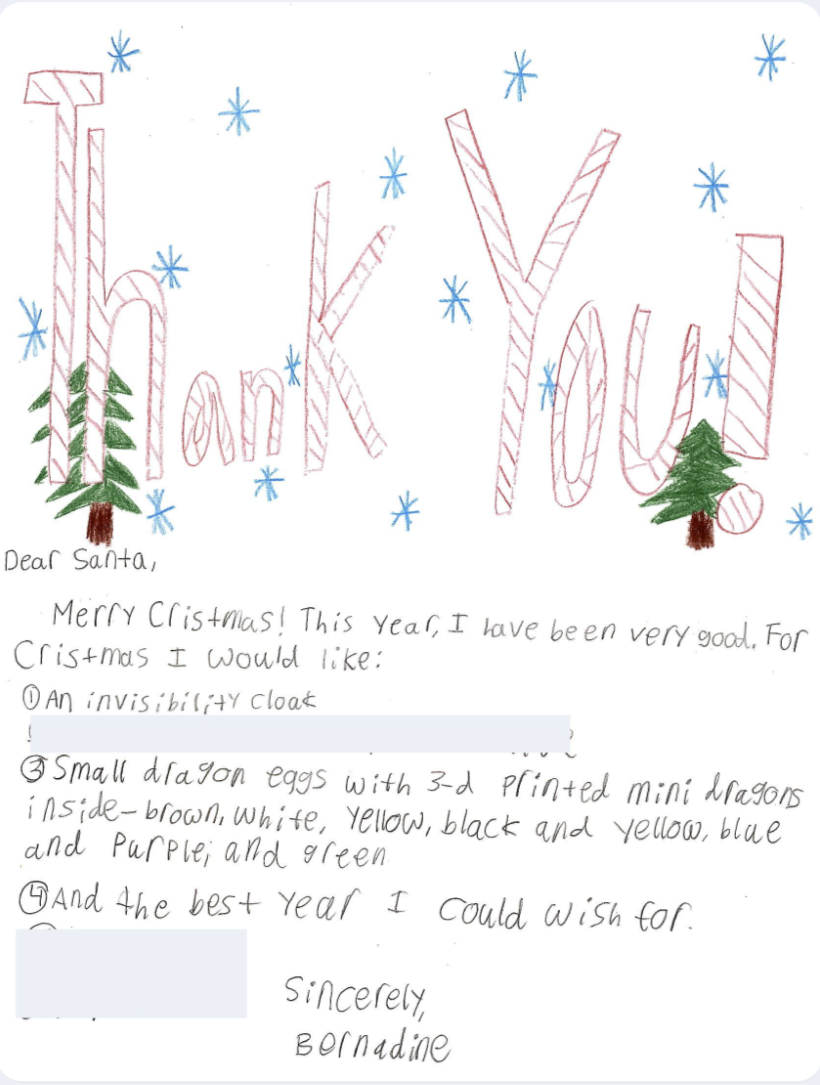 Thank You!
Dear Santa,
Merry Cristmas! This year, I have been very good. For
Cristmas I would like:
① An invisibility cloak
③ Small dragon eggs with 3-d printed mini dragons
inside-brown, white, yellow, black and yellow, blue
and purple, and green
④ And the best year I could wish for.
Sincerely,
Bernadine